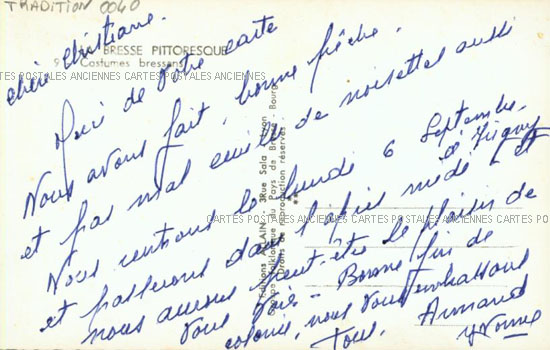 TRADITION 0040
LA BRESSE PITTORESQUE
9 Costumes bressans
CARTES POSTALES ANCIENNES CARTES POSTALES ANCIENNES CARTES POSTALES ANCIENNES
Chère Christiane.
Merci de votre carte
Nous avons fait, bonne pêche.
et pas mal cueilli de noisettes aussi
Nous rentrons le lundi 6 Septembre.
et passerons dans l'après midi à et
nous aurons peut-être le plaisir de
vous voir - Bonne fin de
colonie, nous vous embrassons
Tous. Armand
Yvonne
Editions ALLAIN 3 Rue Sala Lyon
Groupe Folklorique du Pays de Bresse - Bourg
Droits de reproduction réservés
CARTES POSTALES ANCIENNES CARTES POSTALES ANCIENNES CARTES POSTALES ANCIENNES